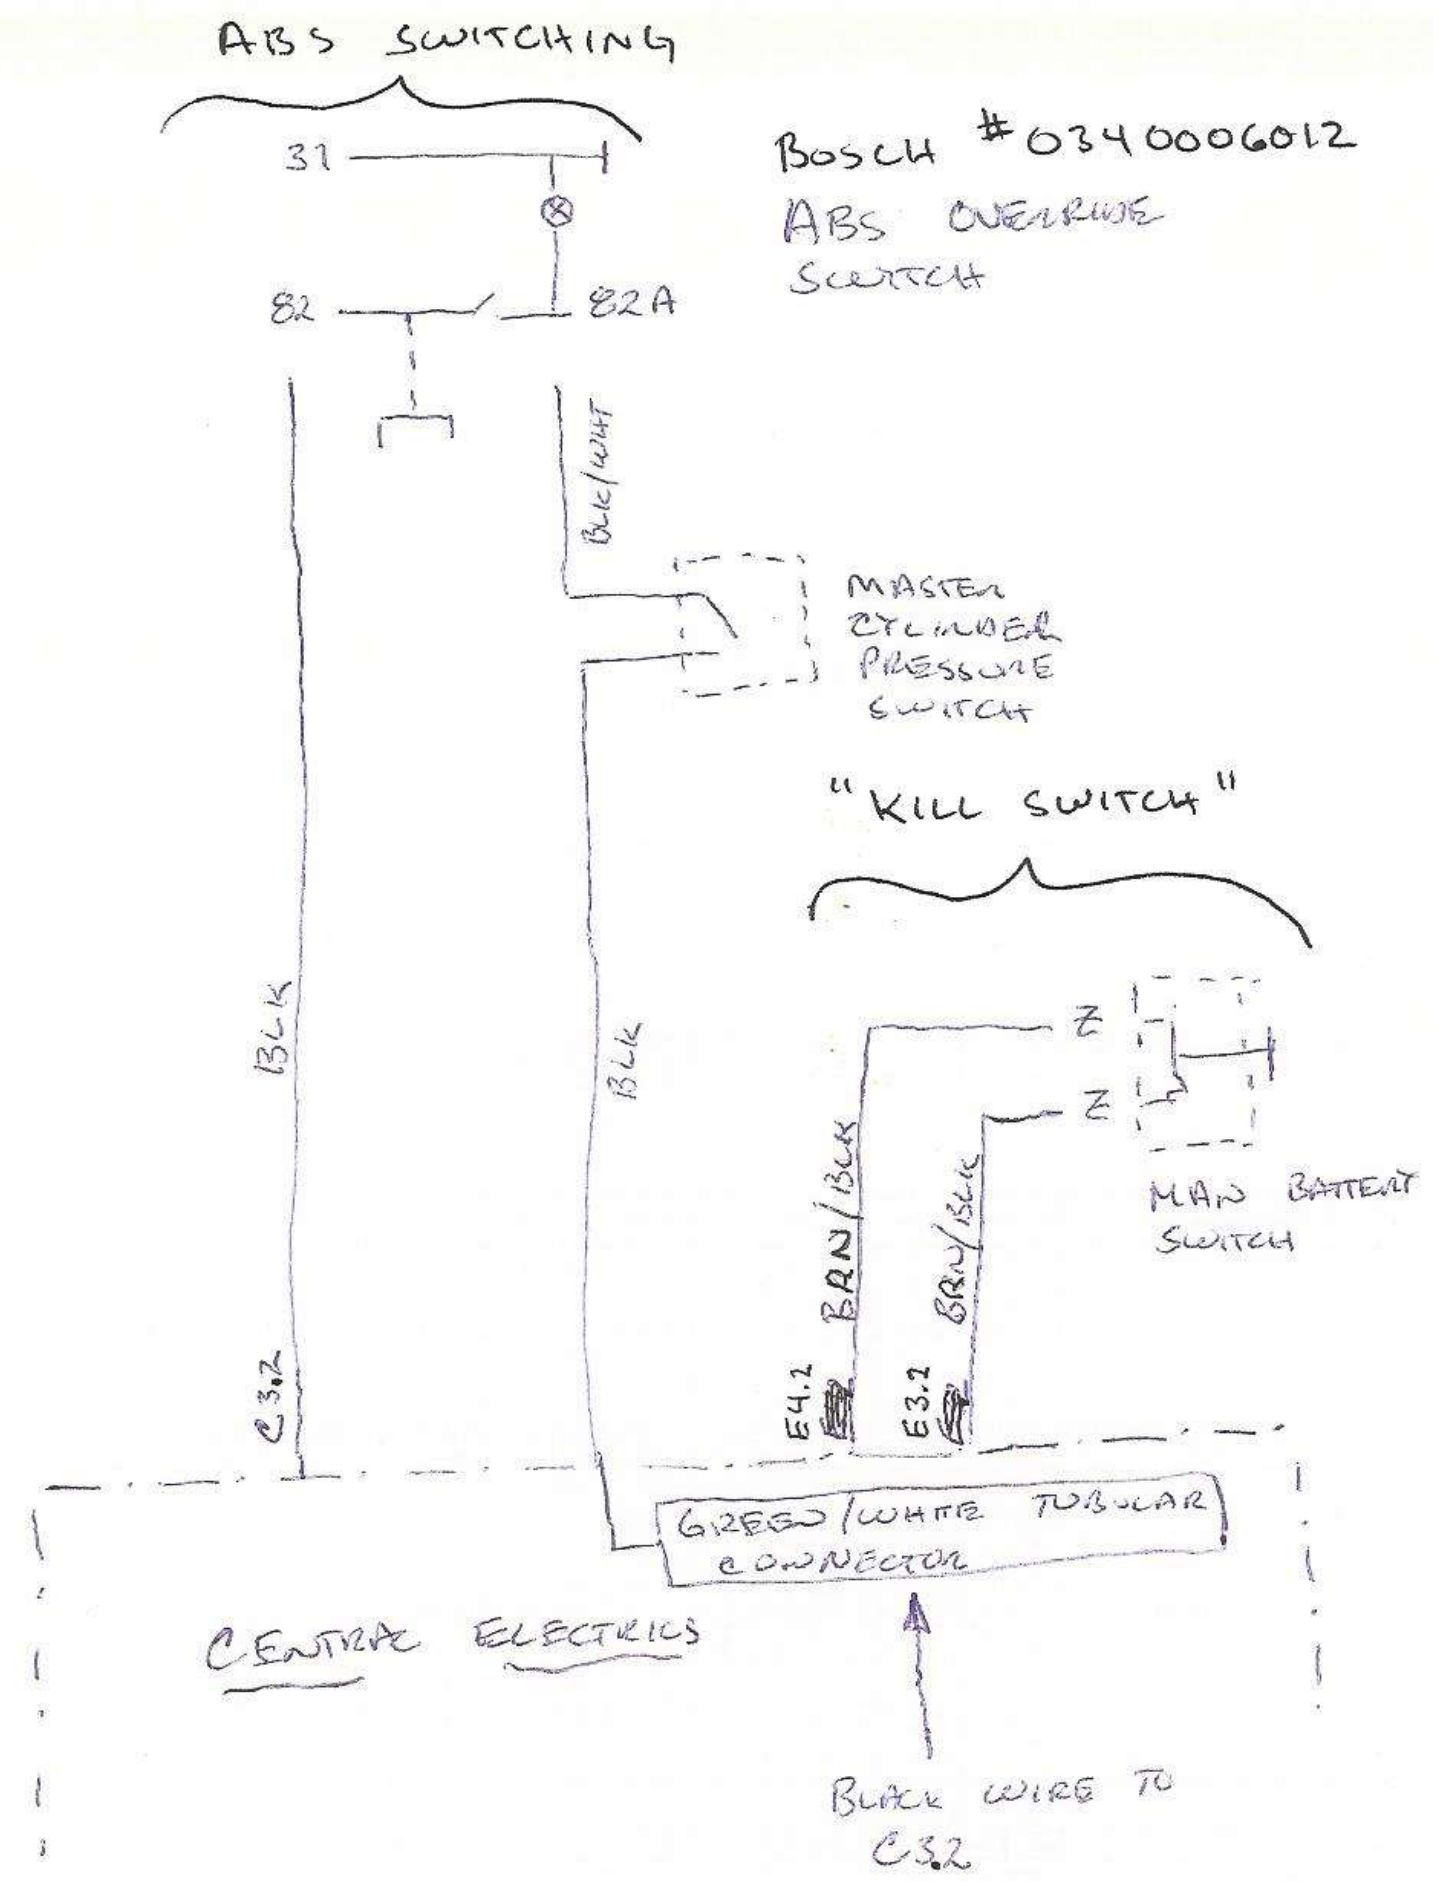 ABS SWITCHING
31
BOSCH #0340006012
ABS OVERRIDE
SWITCH
82
82A
BLK/WHT
MASTER
CYLINDER
PRESSURE
SWITCH
"KILL SWITCH"
BLK
BLK
Z
Z
BRN/BLK
BRN/BLK
MAIN BATTERY
SWITCH
C3.2
E4.2
E3.2
GREEN/WHITE TUBULAR
CONNECTOR
CENTRAL ELECTRICS
BLACK WIRE TO
C3.2